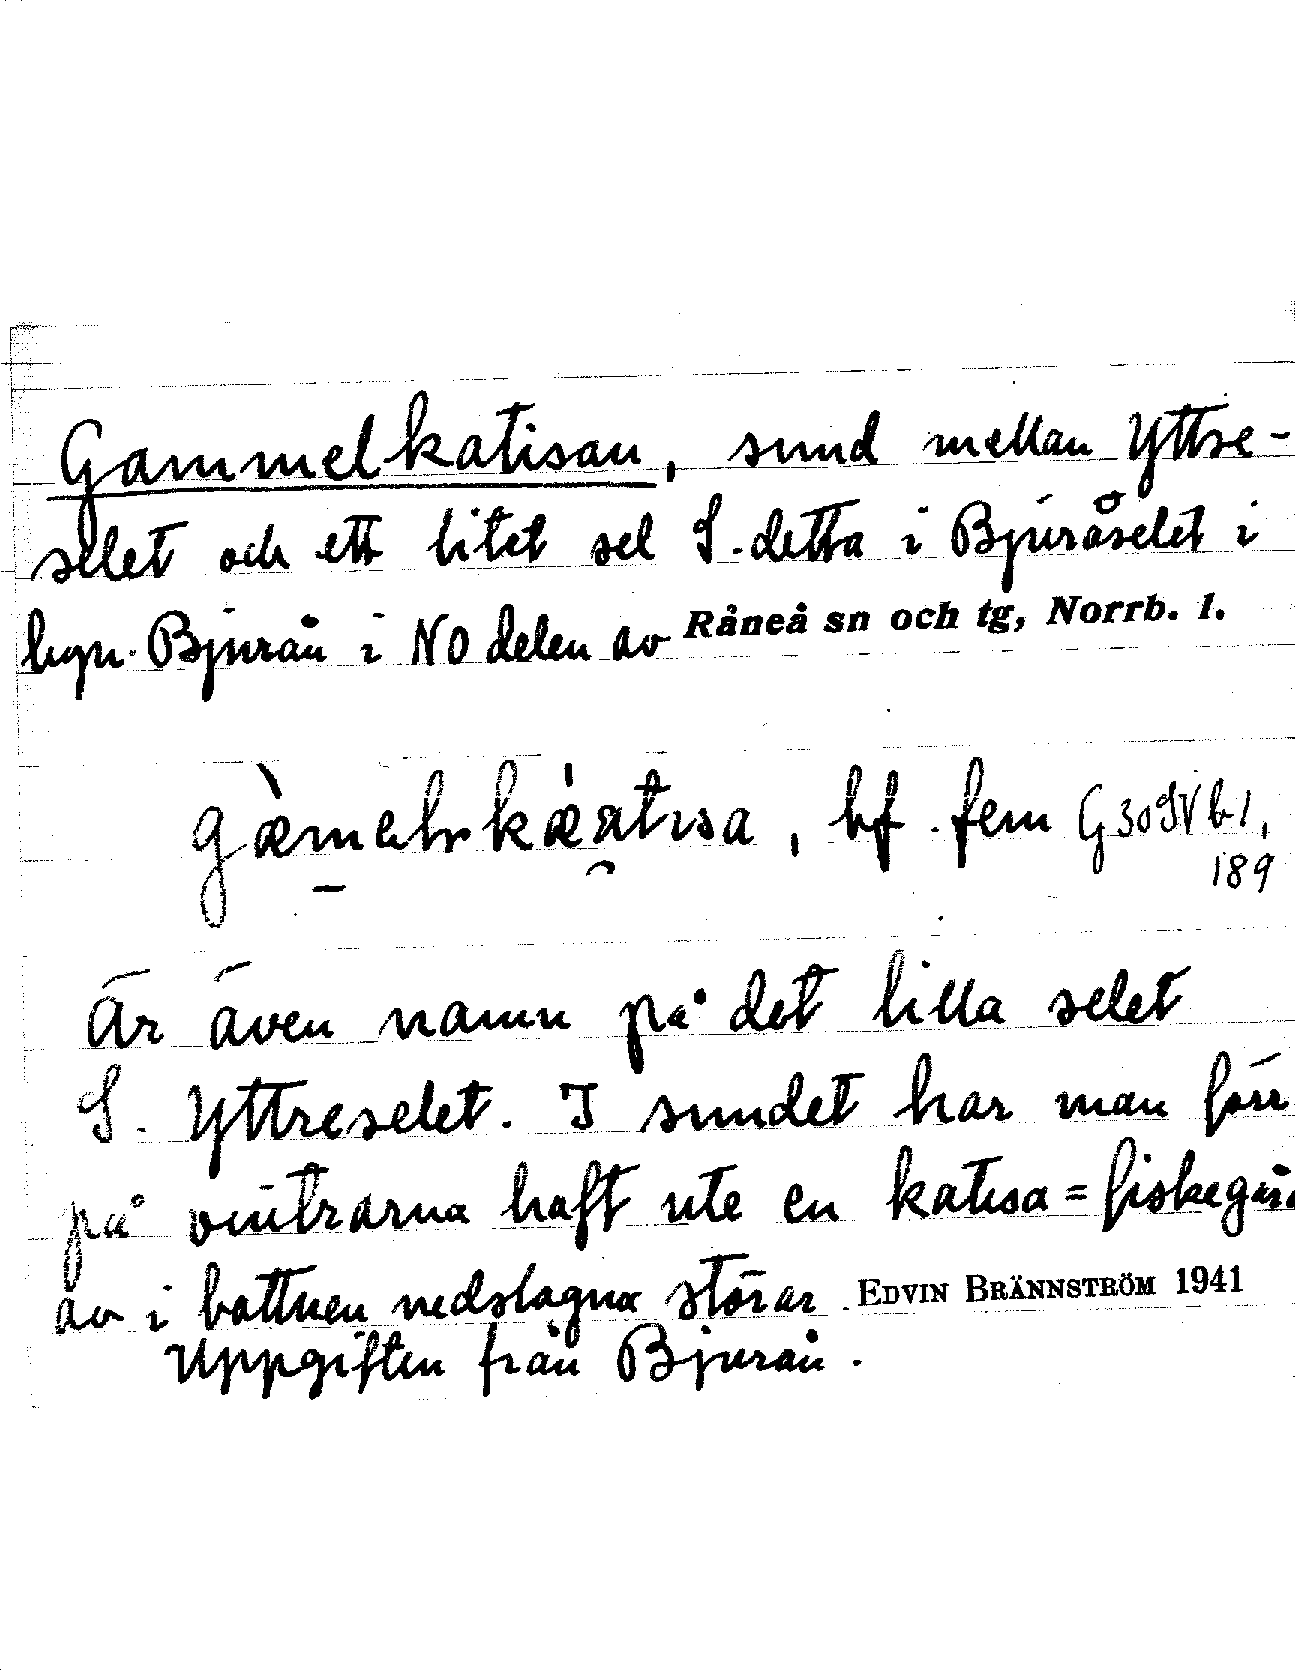 Gammelkatisan, sund mellan Yttre-
selet och ett litet sel S. detta i Bjuråselet i
byn Bjurån i NO delen av Råneå sn och tg, Norrb. l.
bf. fem G 30 SV b 1,
189
Är även namn på det lilla selet
S. Yttreselet. I sundet har man förr
på vintrarna haft ute en katisa = fiskegår
av i bottnen nedslagna störar. EDVIN BRÄNNSTRÖM 1941
Uppgiften från Bjurån.